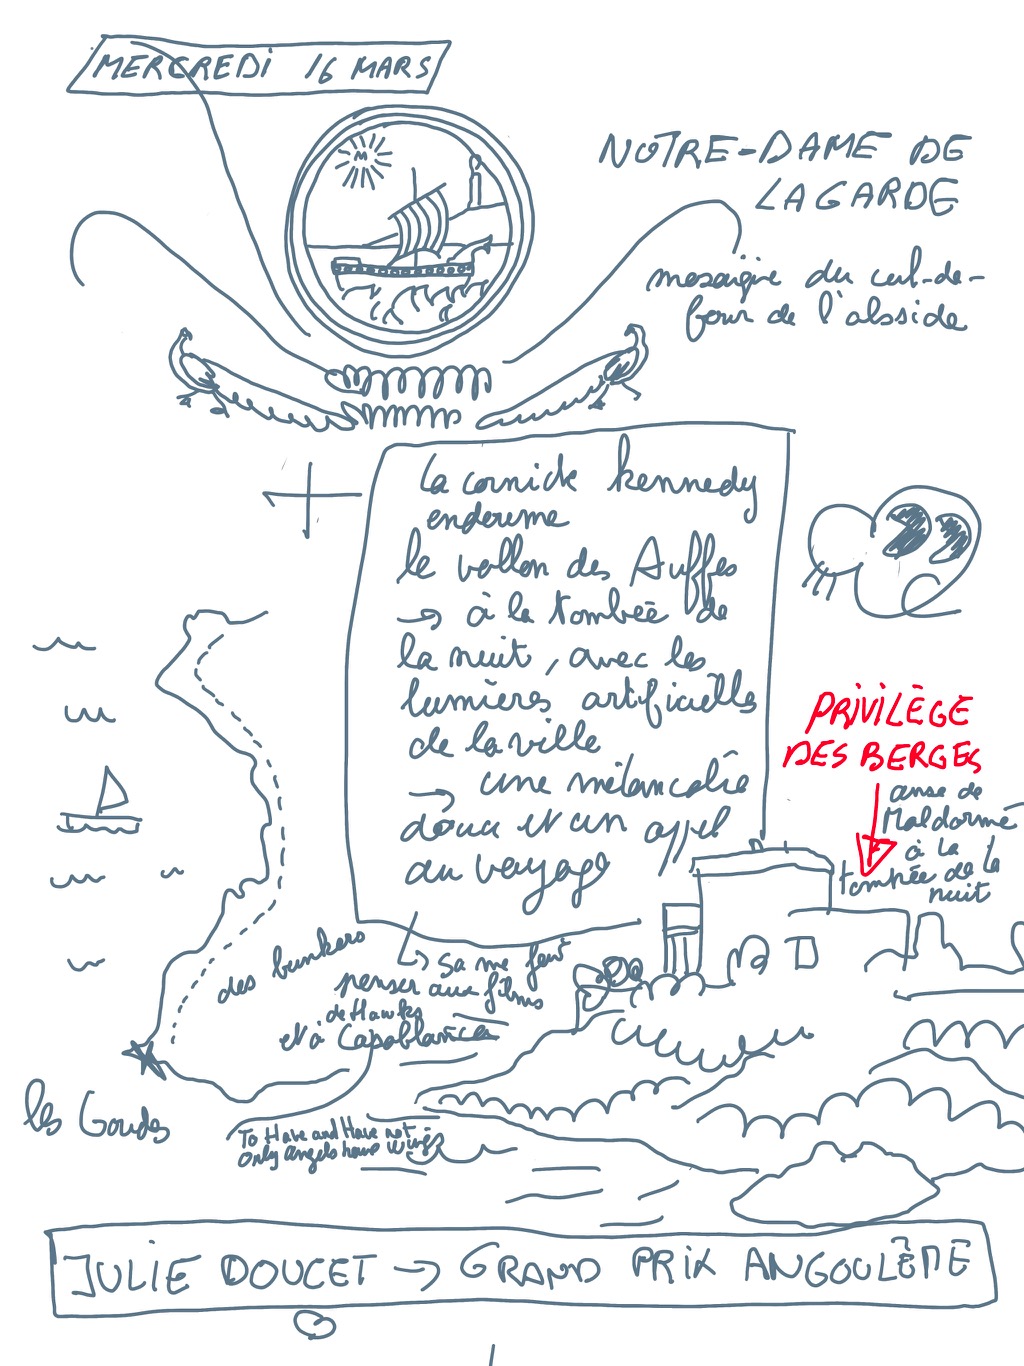 MERCREDI 16 MARS
NOTRE-DAME DE
LA GARDE
mosaïque du cul-de-
four de l'abside
la cornick kennedy
enserme
le vallon des Auffes
→ à la tombée de
la nuit, avec les
lumières artificielles
de la ville
→ une mélancolie
douce et un appel
au voyage
PRIVILÈGE
DES BERGES
anse de
Maldormé
à la
tombée de la
nuit
des bunkers
↳ sa me fait
penser aux films
de Hawks
et à Capablanca
les Goudes
To Have and Have not
Only angels have wings
JULIE DOUCET → GRAND PRIX ANGOULÊME